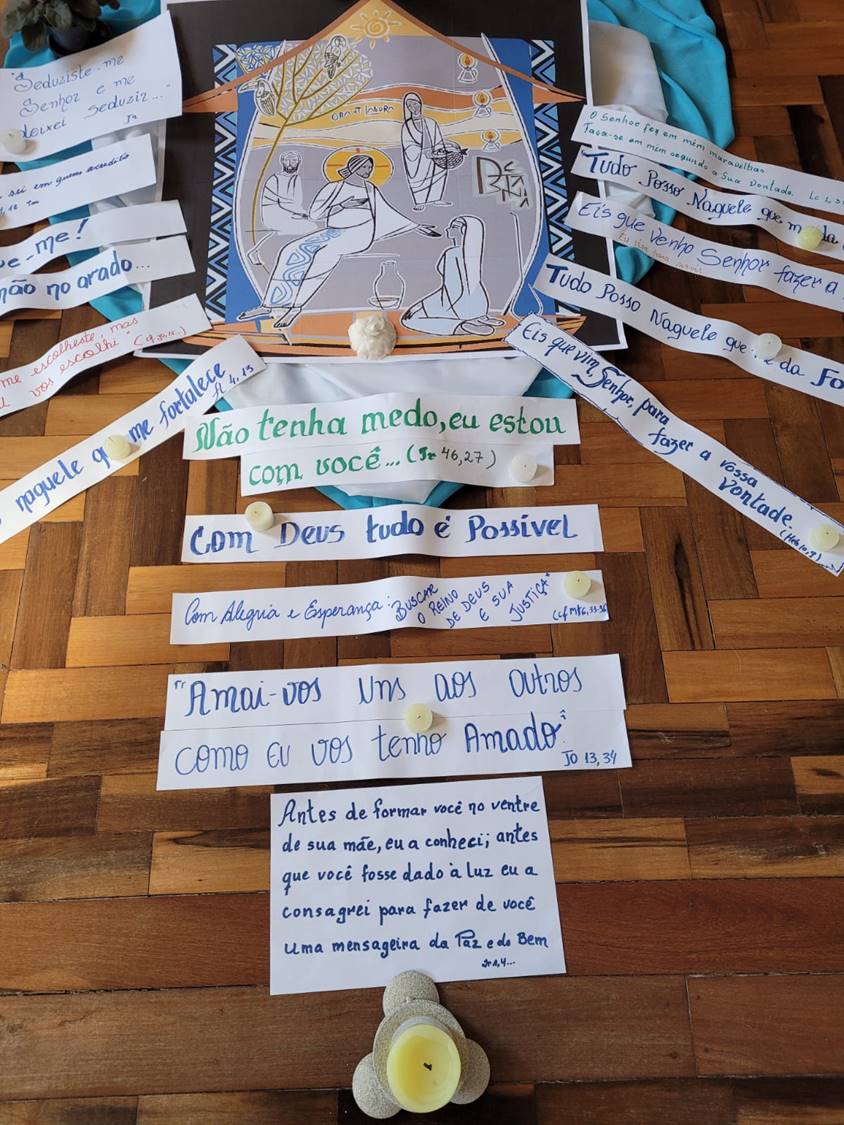 "Seduziste-me
Senhor e me
deixei Seduzir..."
Jr
sei em quem acredito
-me!
mão no arado...
me escolheste, mas
vos escolhi"
naquele que me fortalece
fl 4,13
ORA ET LABORA
BETANIA
O Senhor fez em mim maravilhas
Faça-se em mim segundo a Sua Vontade. Lc 1,
Tudo Posso Naquele que me da
Eis que venho Senhor fazer a
Tudo Posso Naquele que me da Fo
Eis que vim, Senhor, para
fazer a vossa
vontade.
Não tenha medo, eu estou
com você... (Jr 46,27)
Com Deus tudo é Possível
Com Alegria e Esperança: BUSCAR
O REINO
DE DEUS
E SUA
JUSTIÇA"
(cf Mt 6,33-34
"Amai-vos uns aos outros
como eu vos tenho Amado"
Jo 13,34
Antes de formar você no ventre
de sua mãe, eu a conheci; antes
que você fosse dado à luz eu a
consagrei para fazer de você
uma mensageira da Paz e do Bem
Jr 1,4...